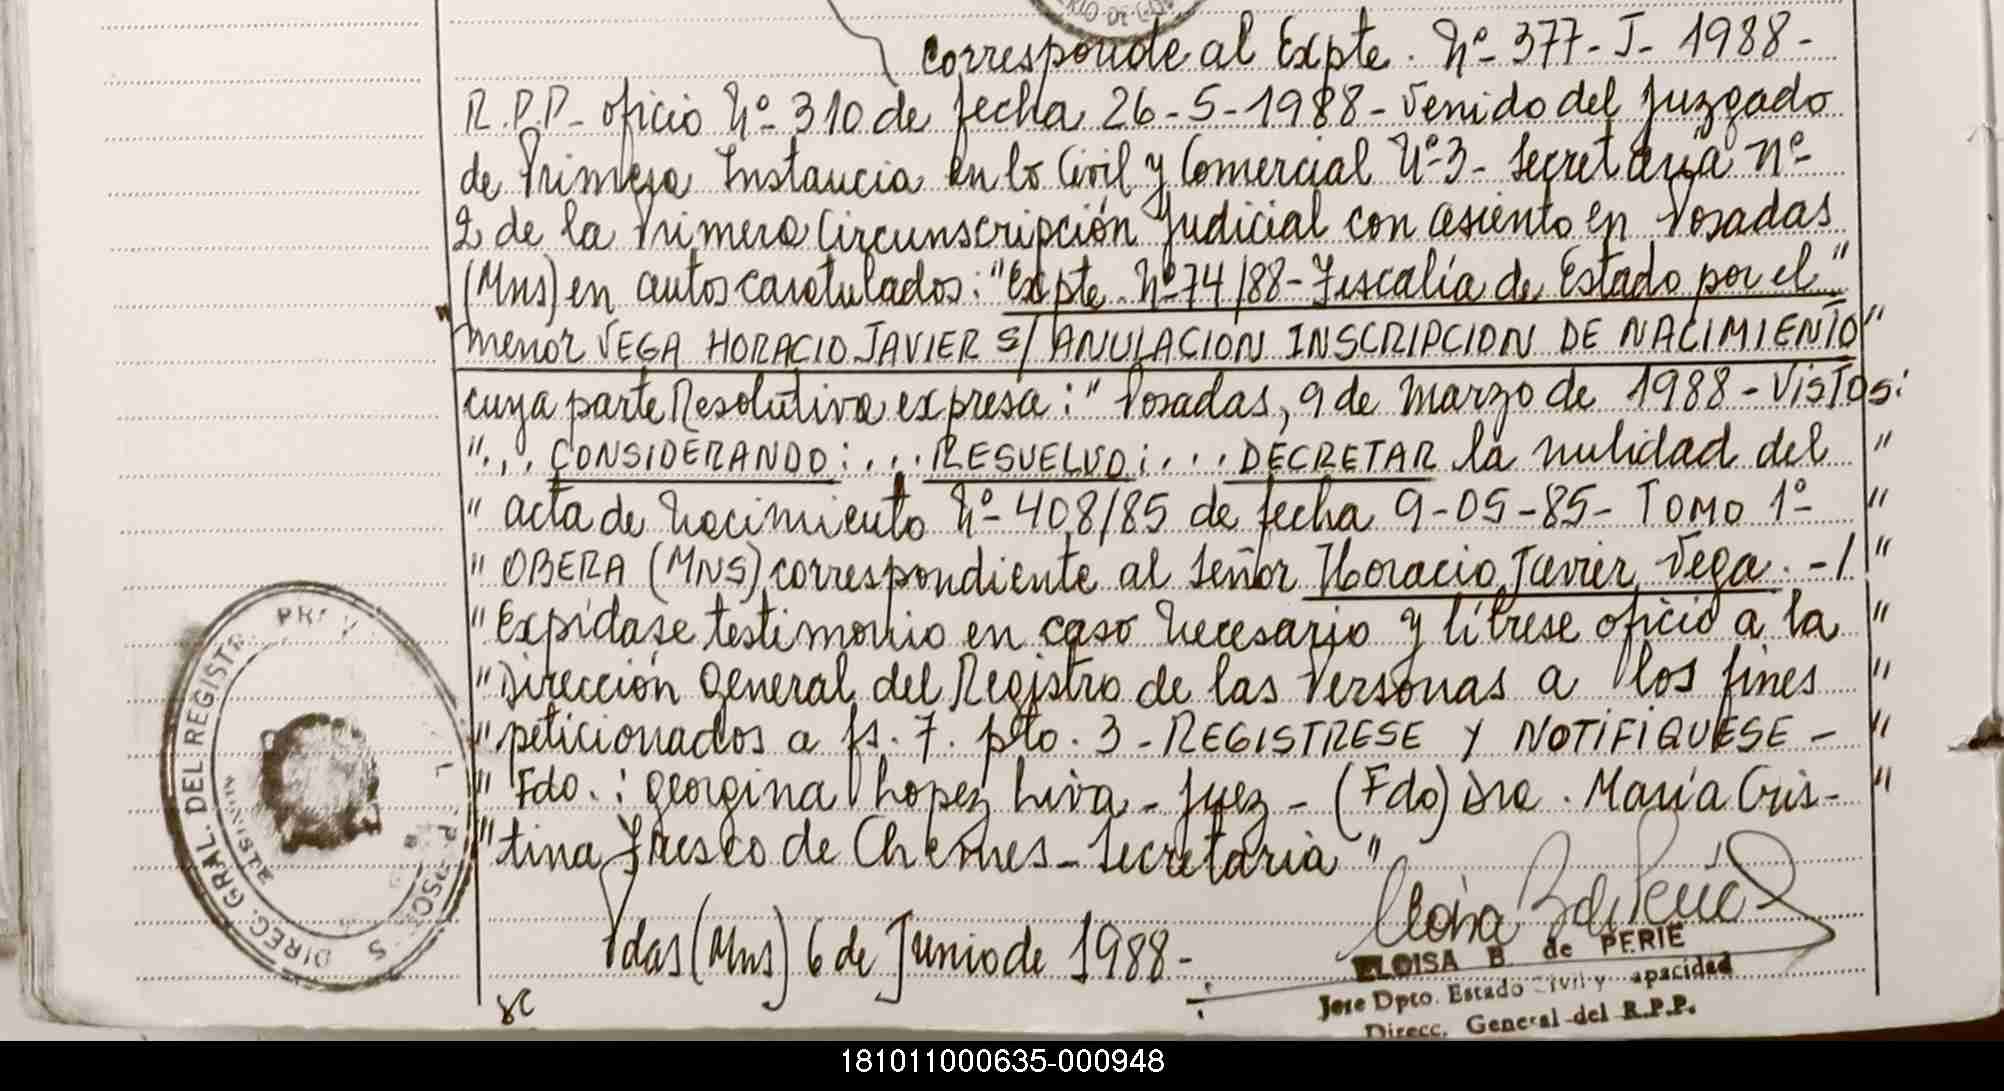 Corresponde al Expte. Nº 377-J-1988-
R.P.P- oficio Nº 310 de fecha 26-5-1988- Venido del Juzgado
de Primera Instancia en lo Civil y Comercial Nº3- Secretaría Nº
2 de la Primera Circunscripción Judicial con asiento en Posadas
(Mns) en autos caratulados: "Expte. Nº 74/88- Fiscalía de Estado por el"
" menor VEGA HORACIO JAVIER S/ ANULACION INSCRIPCION DE NACIMIENTO"
cuya parte Resolutiva expresa: " Posadas, 9 de Marzo de 1988- VISTOS:
"... CONSIDERANDO: ... RESUELVO: ... DECRETAR la nulidad del "
" acta de Nacimiento Nº 408/85 de fecha 9-05-85- TOMO 1º "
" OBERA (MNS) correspondiente al Señor Horacio Javier Vega. -/ "
" Expídase testimonio en caso Necesario y líbrese oficio a la "
" Dirección General del Registro de las Personas a los fines "
" peticionados a fs. 7. pto. 3- REGISTRESE Y NOTIFIQUESE - "
" Fdo. : Georgina Lopez Liva - Juez - (Fdo) Dra. María Cris- "
" tina Fresco de Chemes- Secretaria "
Pdas (Mns) 6 de Junio de 1988-
ELOISA B. de PERIE
Jefe Dpto. Estado Civil y Capacidad
Direcc. General del R.P.P.
DIREC. GRAL. DEL REGISTR
181011000635-000948